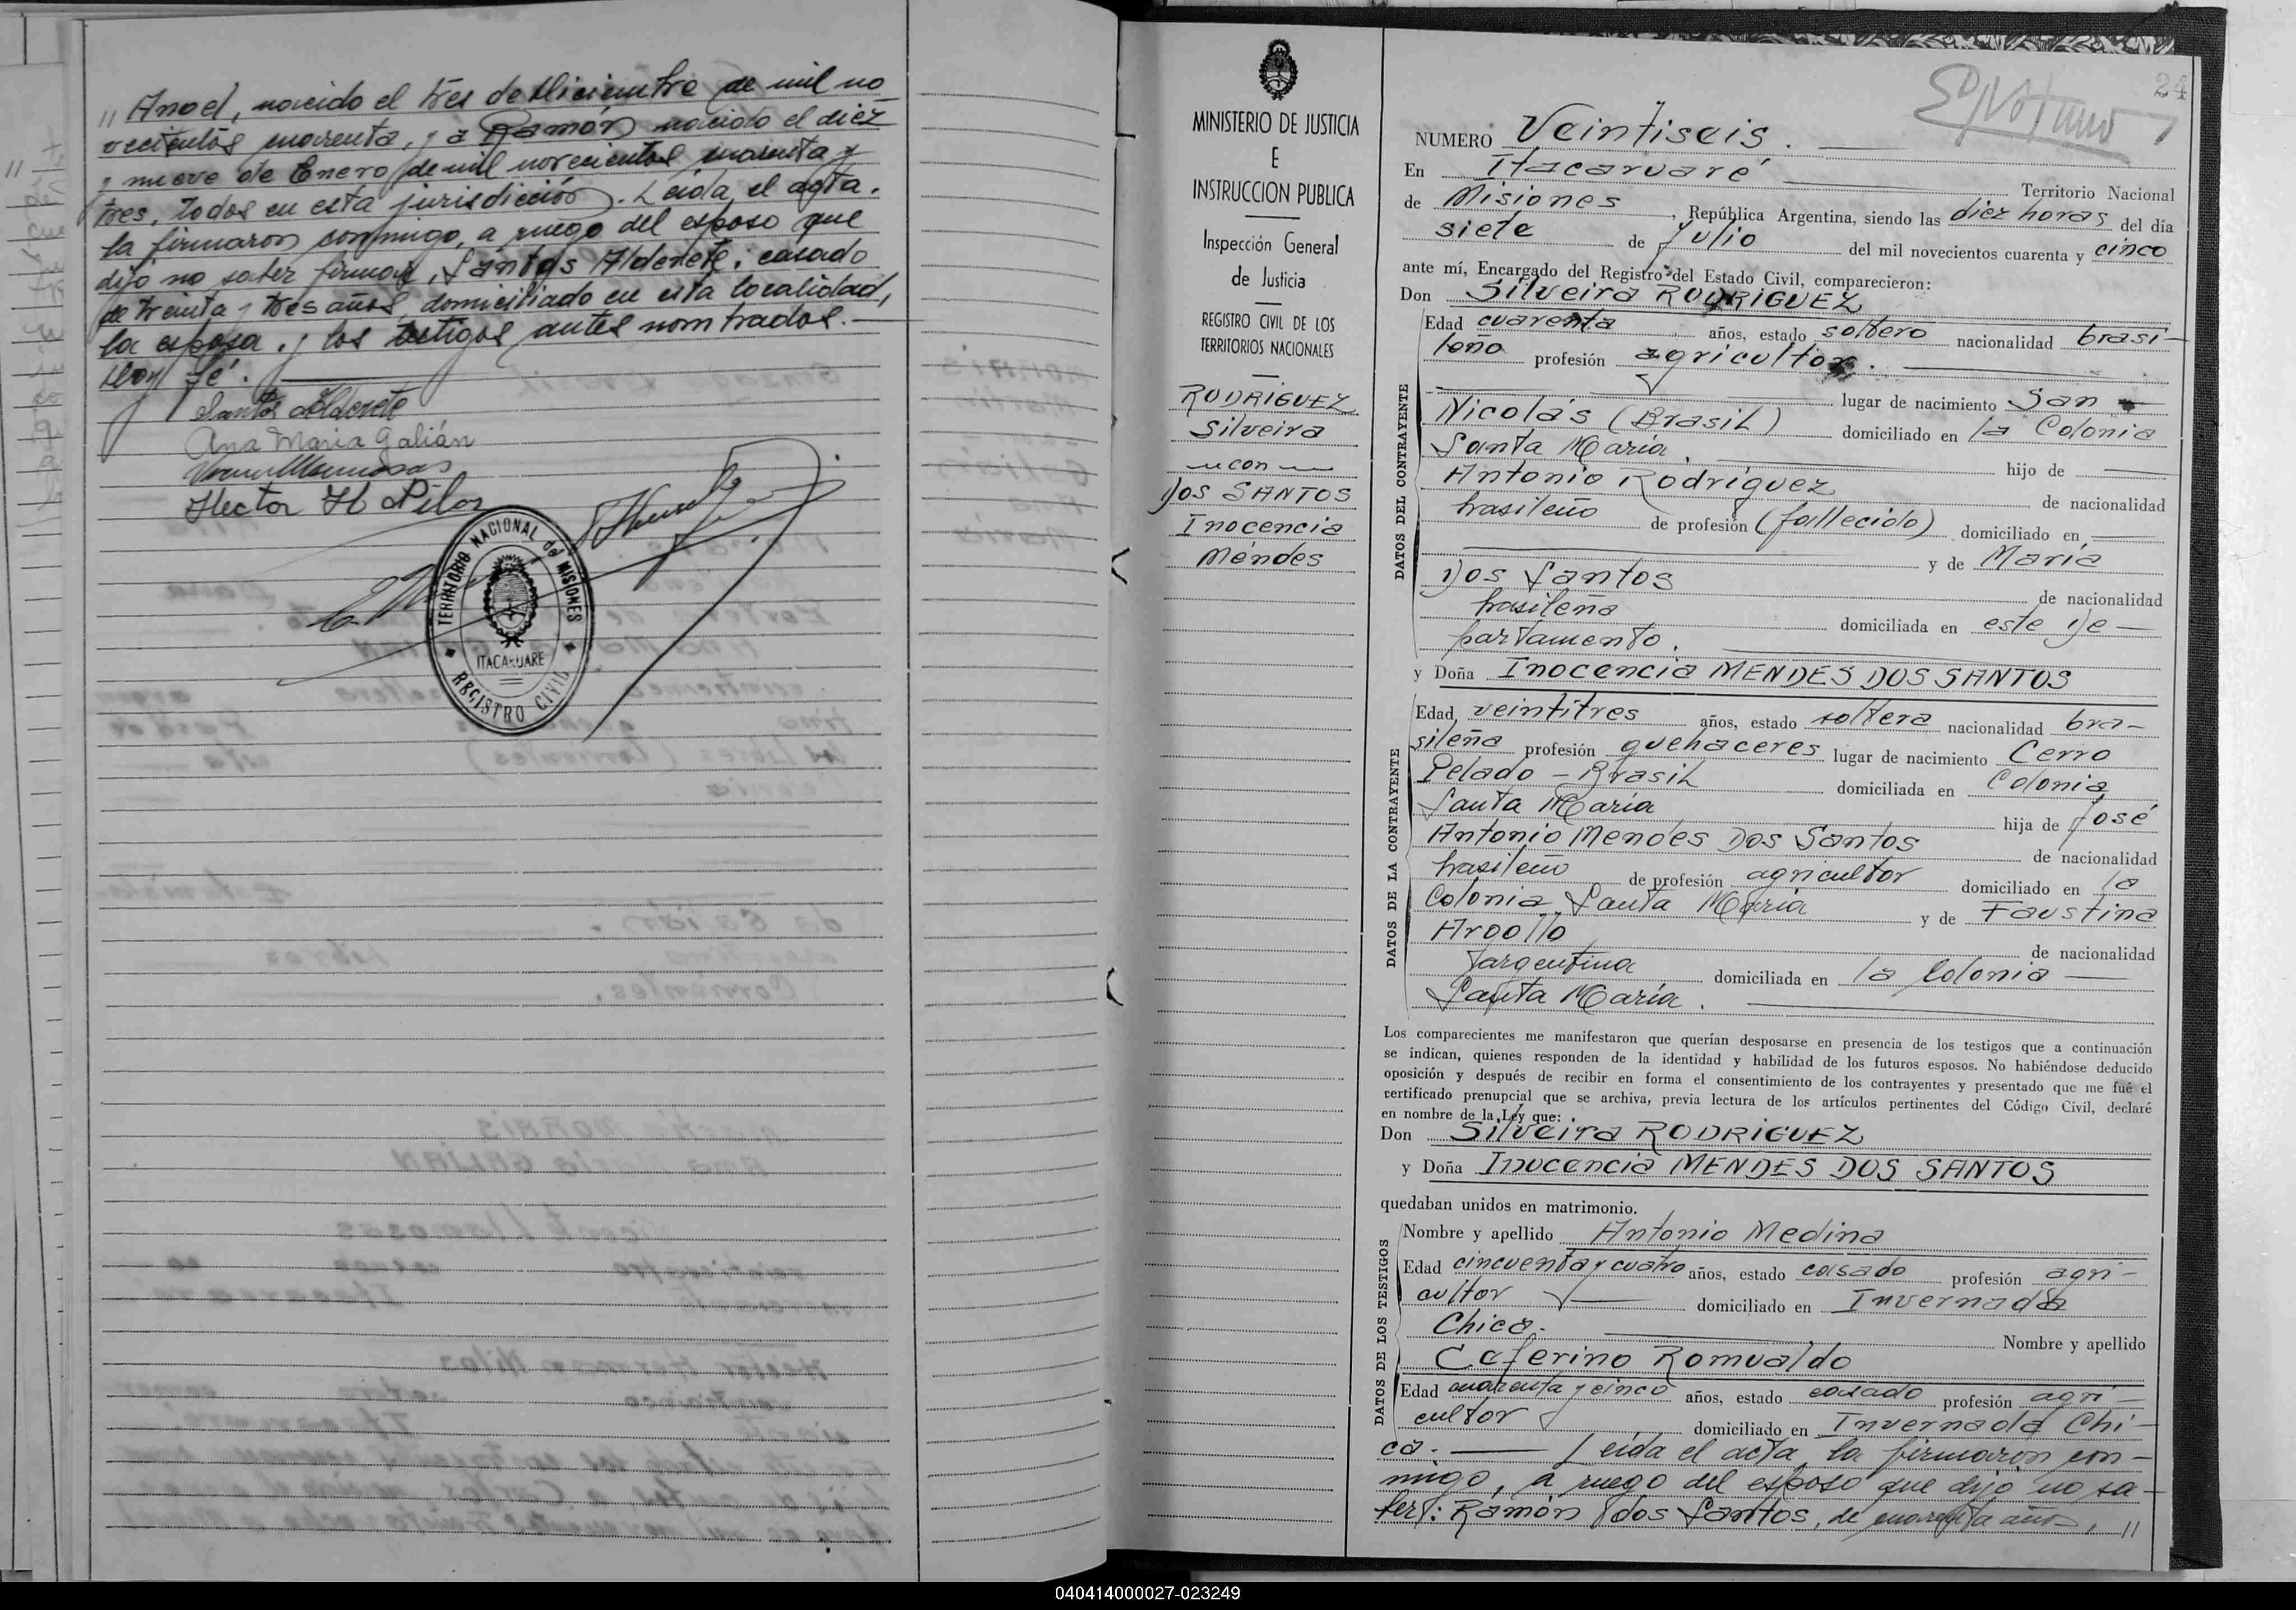 " Anoel, nacido el tres de Diciembre de mil no
vecientos cuarenta, y a Ramón nacido el diez
y nueve de Enero de mil novecientos cuarenta y
tres, todos en esta jurisdicción. Leída el acta.
la firmaron conmigo, a ruego del esposo que
dijo no saber firmar, Santos Alderete; casado
de treinta y tres años, domiciliado en esta localidad,
la esposa. y los testigos antes nombrados.—
Doy fé.
Santos Alderete
Ana María Galián
Hector H Pilos
TERRITORIO NACIONAL de MISIONES
ITACARUARE
REGISTRO CIVIL
MINISTERIO DE JUSTICIA
E
INSTRUCCION PUBLICA
Inspección General
de Justicia
REGISTRO CIVIL DE LOS
TERRITORIOS NACIONALES
RODRIGUEZ
Silveira
—con—
DOS SANTOS
Inocencia
Méndes
24
NUMERO Veintiseis.
En Itacaruaré Territorio Nacional
de Misiones, República Argentina, siendo las diez horas del día
siete de Julio del mil novecientos cuarenta y cinco
ante mí, Encargado del Registro del Estado Civil, comparecieron:
Don Silveira RODRIGUEZ
DATOS DEL CONTRAYENTE
Edad cuarenta años, estado soltero nacionalidad brasi-
leña profesión agricultor.
lugar de nacimiento San
Nicolás (Brasil) domiciliado en la Colonia
Santa María. hijo de
Antonio Rodríguez de nacionalidad
brasileño de profesión (fallecido) domiciliado en
y de María
Dos Santos de nacionalidad
brasileña domiciliada en este De—
partamento.
y Doña Inocencia MENDES DOS SANTOS
DATOS DE LA CONTRAYENTE
Edad veintitres años, estado soltera nacionalidad bra-
sileña profesión quehaceres lugar de nacimiento Cerro
Pelado - Brasil domiciliada en Colonia
Santa María hija de José
Antonio Mendes Dos Santos de nacionalidad
brasileño de profesión agricultor domiciliado en la
Colonia Santa María y de Faustina
Arollo de nacionalidad
argentina domiciliada en la Colonia
Santa María.
Los comparecientes me manifestaron que querían desposarse en presencia de los testigos que a continuación
se indican, quienes responden de la identidad y habilidad de los futuros esposos. No habiéndose deducido
oposición y después de recibir en forma el consentimiento de los contrayentes y presentado que me fué el
certificado prenupcial que se archiva, previa lectura de los artículos pertinentes del Código Civil, declaré
en nombre de la Ley que:
Don Silveira RODRIGUEZ
y Doña Inocencia MENDES DOS SANTOS
quedaban unidos en matrimonio.
DATOS DE LOS TESTIGOS
Nombre y apellido Antonio Medina
Edad cincuenta y cuatro años, estado casado profesión agri-
cultor domiciliado en Invernada
Chica. Nombre y apellido
Ceferino Romualdo
Edad cuarenta y cinco años, estado casado profesión agri-
cultor domiciliado en Invernada Chi-
ca. — Leída el acta, la firmaron con-
migo, a ruego del esposo que dijo no sa-
ber: Ramón dos Santos, de cuarenta años, "
040414000027-023249